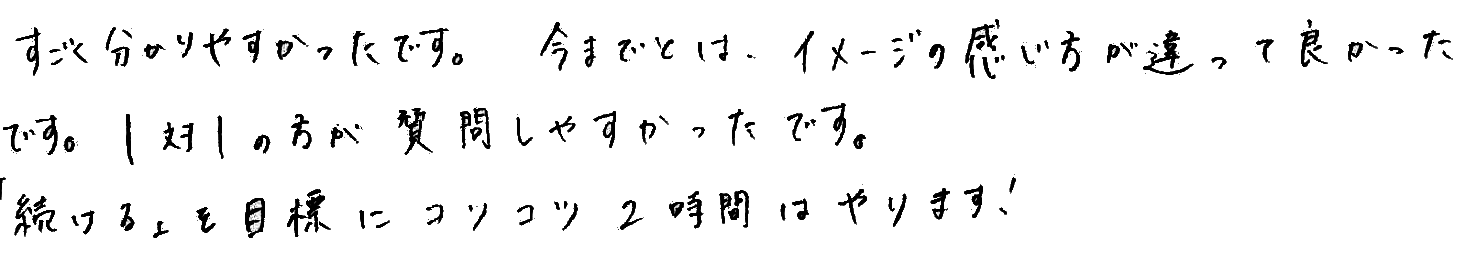 すごく分かりやすかったです。 今までとは、イメージの感じ方が違って良かった
です。1対1の方が質問しやすかったです。
「続ける」を目標にコツコツ2時間はやります!